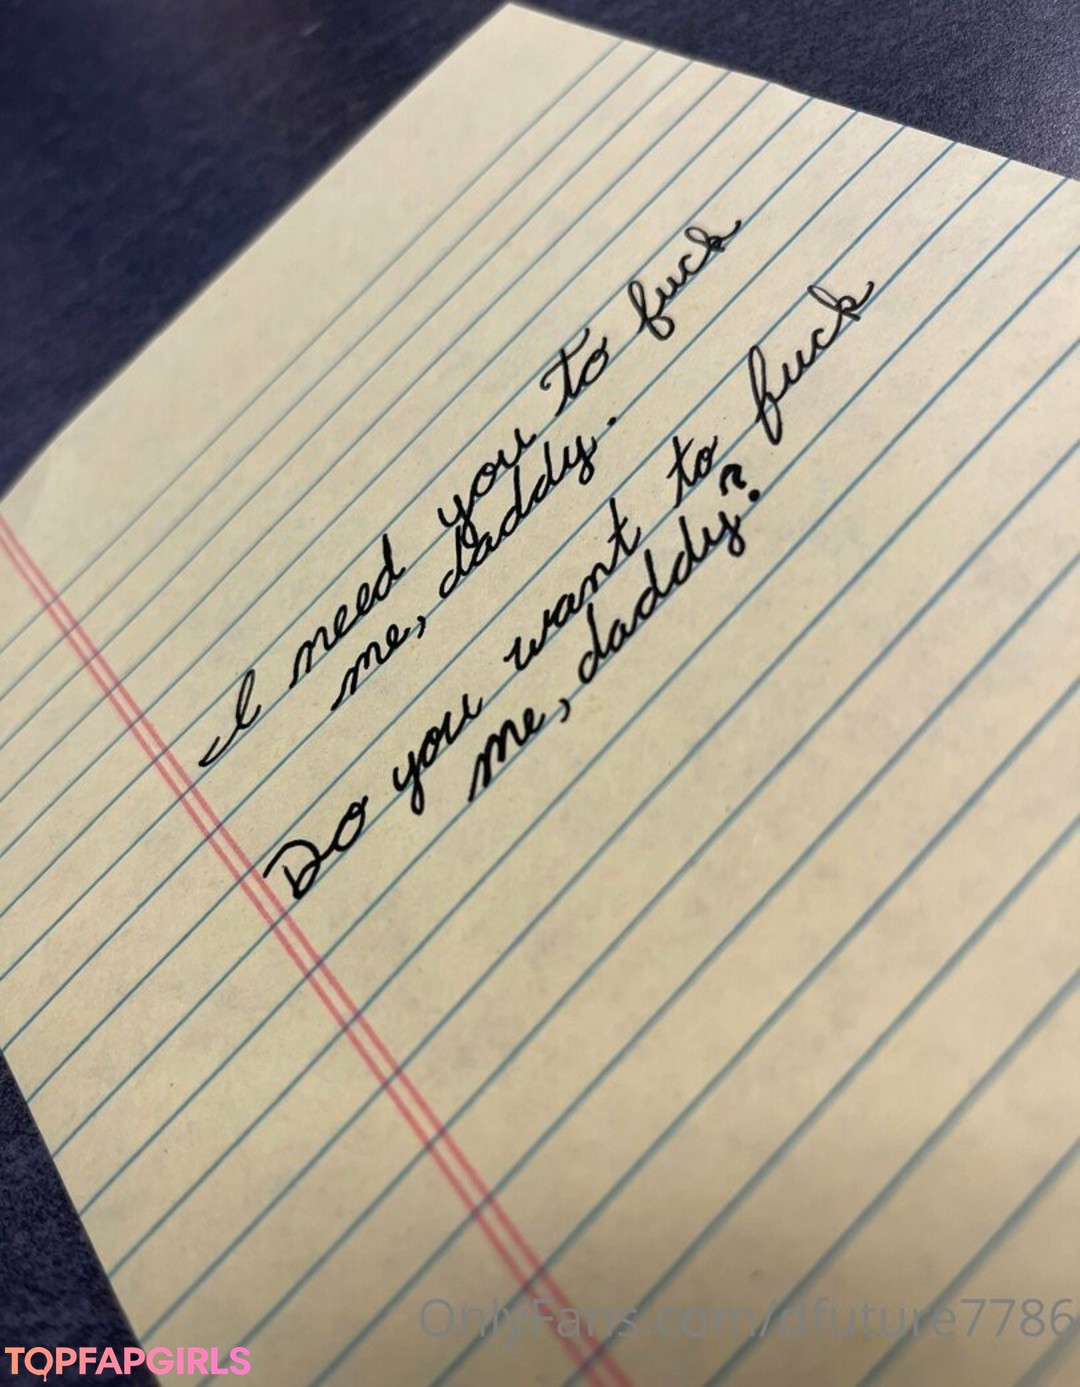 I need you to fuck
me, daddy.
Do you want to fuck
me, daddy?
OnlyFans.com/dfuture7786
TOPFAPGIRLS